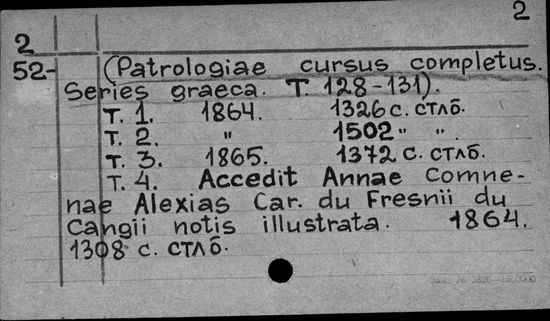 2
2
52- (Patrologiae cursus completus.
Series graeca. T. 128-131).
T. 1. 1864. 1326 с. стлб.
T. 2. " 1502 " ".
T. 3. 1865. 1372 с. стлб.
T. 4. Accedit Annae Comne-
nae Alexias Car. du Fresnii du
Cangii notis illustrata. 1864.
1308 с. стлб.